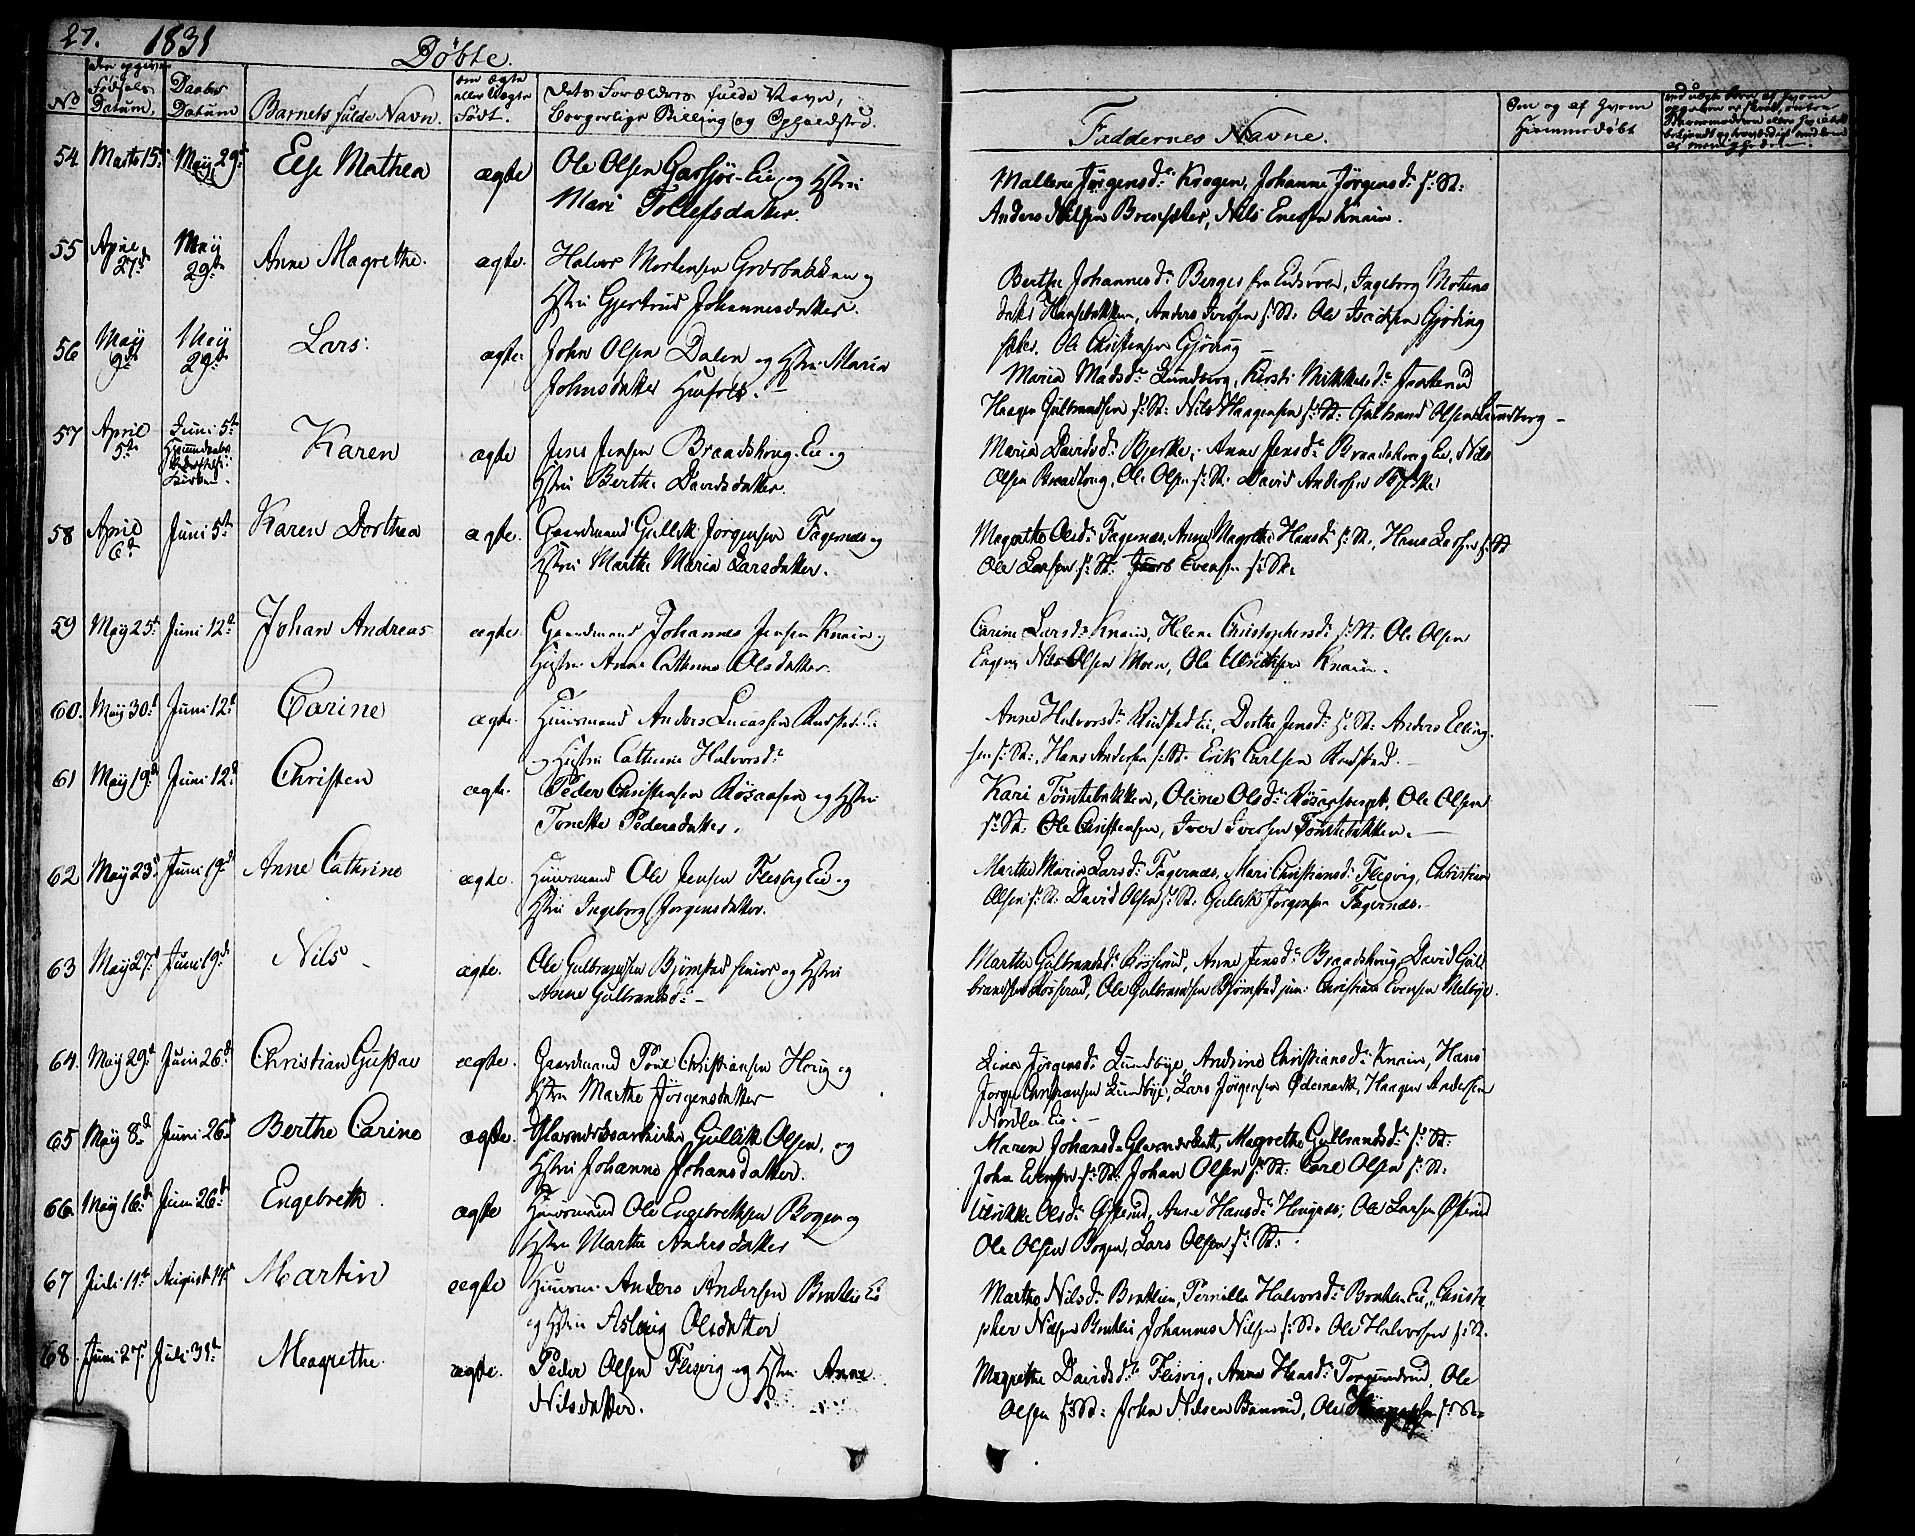 27. 1831
Døbte.
No
Fødsels Datum.
Daabs Datum
Barnets fulde Navn.
om ægte eller uægte Født.
dets Forældres fulde Navn, Borgerlige Stilling og Opholdsted.
Faddernes Navne.
Om og af hvem Hiemmedøbt
54 Marts 15. May 29. Else Mathea ægte Ole Olsen Garsjøe-Eie og Hstru
Mari Tollefsdatter.
Mallene Jørgensd. Krogen, Johanne Jørgensd. f: St:
Anders Nilsen Nils Knain.
55 April 27. May 29. Anne Magrethe. ægte. Halvor Mortensen og
Hstru Gjertrud Johannesdatter.
Berthe Johannesd. Berger fra Eidsvold, Ingeborg Mortens
datter Anders Iversen f: St: Ole
Ole Christensen
56 May 9d May 29d Lars. ægte. John Olsen Dalen og Hstru Maria
Johnsdatter
Maria Madsd. Lundberg, Kersti Mikkelsd.
Haagen Gulbrandsen f: St: Nils Haagensen f: St: Gulbrand Olsen Lundberg -
57 April 5te Juni 5te Karen ægte Jens Jensen Braadskoug-Eie og
Hstru Berthe Davidsdatter.
Maria Davidsd. Bjerke, Anne Jensd. Braadskoug Eie, Nils
Olsen Ole Olsen f: St: David Andersen
58 April 6t Juni 5te Karen Dorthea ægte. Gaardmand Gullik Jørgensen Fagernæs og
Hstru Marthe Maria Larsdatter.
Magrethe Olsd. Fagernæs, Anne Magrethe Hansd. f: St., Hans Larsen f: St
Ole Larsen f: St. Evensen f: St.
59 May 25t Juni 12t Johan Andreas ægte. Gaardmand Johannes Jensen Knain og
Hustru Anne Cathrine Olsdatter.
Carine Larsd. Knain, Helene Christophersd. f: St. Ole Olsen
Nils Olsen Moen, Ole Knain.
60. May 30t Juni 12t Carine ægte. Huusmand Anders Lucassen
og Hstru Cathrine Halvorsd.
Anne Halvorsd. Eie, Dorthe Jensd. f: St: Anders Elling-
sen f: St:, Hans Andersen f: St. Erik Carlsen
61 May 19d Juni 12d Christen ægte. Peder Christensen Røsaasen og Hstru
Tonette Pedersdatter.
Kari Tømtebakken, Oline Olsd. Ole Olsen
f: St: Ole Christensen, Iver Iversen Tømtebakken.
62 May 23d Juni 19d Anne Cathrine ægte. Huusmand Ole Jensen Eie og
Hstru Ingeborg Jørgensdatter.
Marthe Maria Larsd. Fagernæs, Mari Christiansd. Flesvig, Christian
Olsen f: St: David Olsen f: St. Gullik Jørgensen Fagernæs.
63 May 27d Juni 19d Nils ægte. Ole Gulbrandsen Bjørnstad senior og Hstru
Anne Gulbrandsd.
Marthe Gulbrandsd. Anne Jensd. Braadskoug, David Gul-
brandsen Ole Gulbrandsen Bjørnstad jun: Christian Evensen Melbye.
64. May 29d Juni 26d Christian Gustav ægte. Gaardmand Povel Christiansen og
Hstru Marthe Jørgensdatter
Lina Jørgensd. Lundbye, Andrine Christiansd. Knain, Hans
Jørgen Christiansen Lundbye, Lars Jørgensen Ødemark, Haagen Andersen
Nordlie Eie.
65 May 8d Juni 26d Berthe Carine ægte. Gullik Olsen, og
Hstru Johanne Johansdatter.
Maren Johansd. Magrethe Gulbrandsd. f: St:
John Evensen f: St: Johan Olsen f: St: Carl Olsen f: St.
66. May 16d Juni 26d Engebreth ægte Huusmand Ole Engebrethsen Bogen og
Hstru Marthe Andersdatter
Ulrikke Olsd. Østerud, Anne Hansd. Ole Larsen Østerud
Ole Olsen Bogen, Lars Olsen f: St:
67 Juli 11t August 14d Martin ægte Anders Andersen Eie
og Hstru Aslaug Olsdatter
Marthe Nilsd. Pernilla Halvorsd. Eie, Christo-
pher Nilsen Johannes Nilsen f: St. Ole Halvorsen f: St.
68. Juni 27d Juli 31t Magrethe ægte. Peder Olsen Flesvig og Hstru Anne
Nilsdatter.
Magrethe Davidsd. Flesvig, Anne Hansd. Torgunrud, Ole
Olsen f: St: John Nilsen Ole f: St.